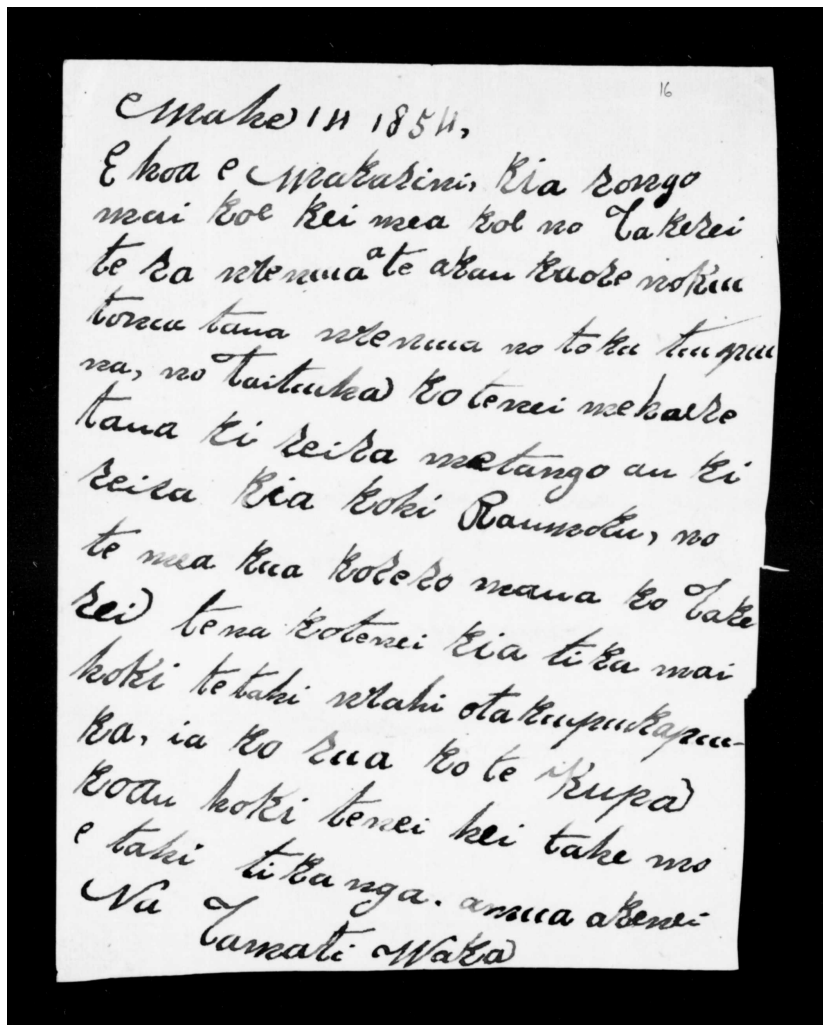 16
Mahe 14 1854,
E hoa e Makarini, kia rongo
mai koe kei mea koe no Takerei
te ra wrenua a te akau kaore nokuu
tonu taua wrenua no toku tuupuu
na, no Taituha ko tenei mehaere
taua ki reira metango au ki
reira kia hoki Raumoku, no
te mea kua korero maua ko Take
rei tena kotenei kia tika mai
hoki tetahi wrahi otakupukapuu-
ka, ia ko rua ko te Kupa
koau hoki tenei hei take mo
e tahi tikanga. amua akenei
Na Tamati Waka